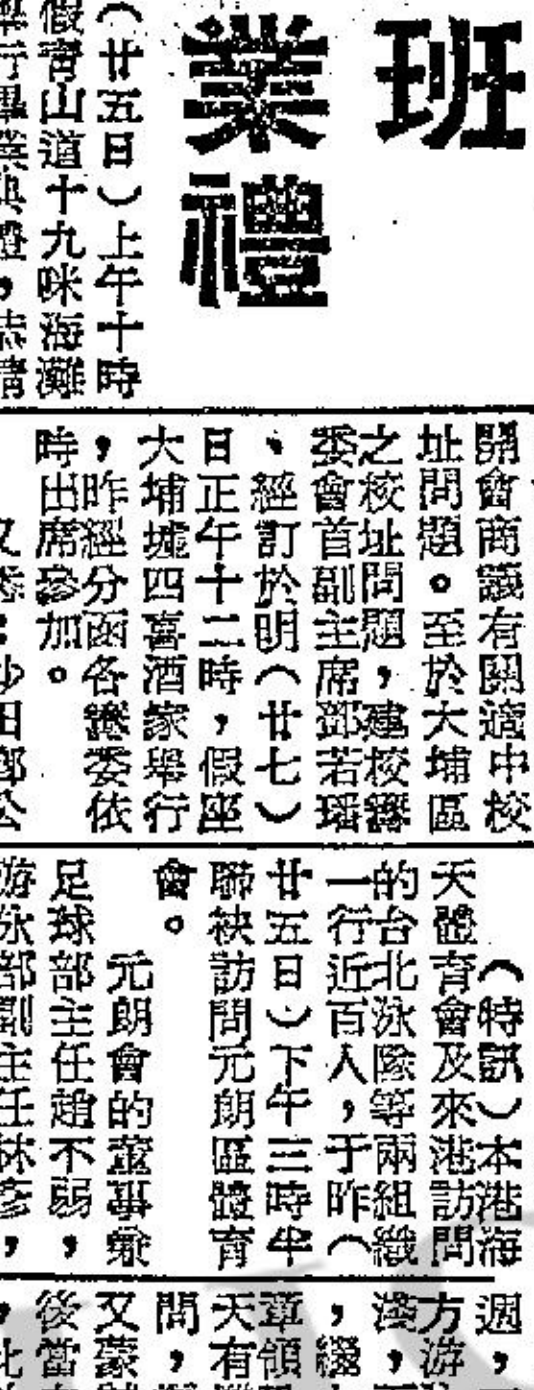 班
業禮
（廿五日）上午十時
假青山道十九咪海灘
舉行畢業典禮，
開會商議有關適中校
址問題。至於大埔區
之校址問題，建校籌
委會首副主席鄧若璠
、經訂於明（廿七）
日正午十二時，假座
大埔墟四喜酒家舉行
，昨經分函各籌委依
時出席參加。
又悉：沙田鄉公
（特訊）本港海
天體育會及來港訪問
的台北泳隊等兩組織
一行近百人，于昨（
廿五日）下午三時半
聯袂訪問元朗區體育
會。
元朗會的董事兼
足球部主任趙不弱，
游泳部副主任林彥，
週，
方游
淺，
，繼
章領
天有
問，
又蒙
後當
，此